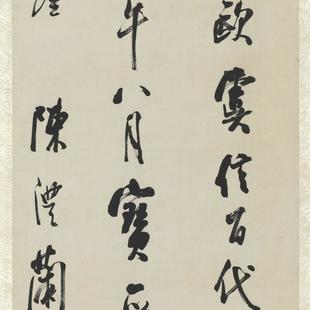 歐虞信百代
年八月寶
陳澧蘭